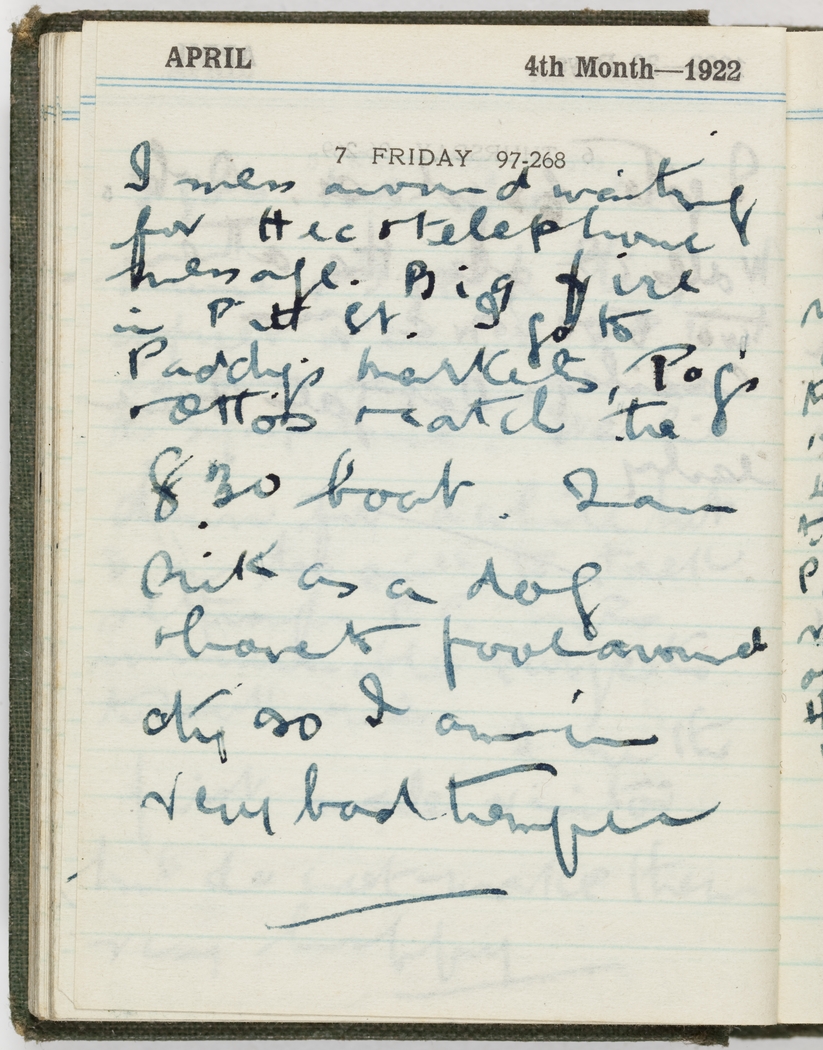 APRIL 4th Month—1922
7 FRIDAY 97-268
I mess around waiting
for Hec & telephone
message. Big fire
in Pitt St. I go to
Paddy's markets, Pog's
& Otto's & catch the
8.30 boat. I am
sick as a dog
& have to fool around
city so I am in
very bad temper